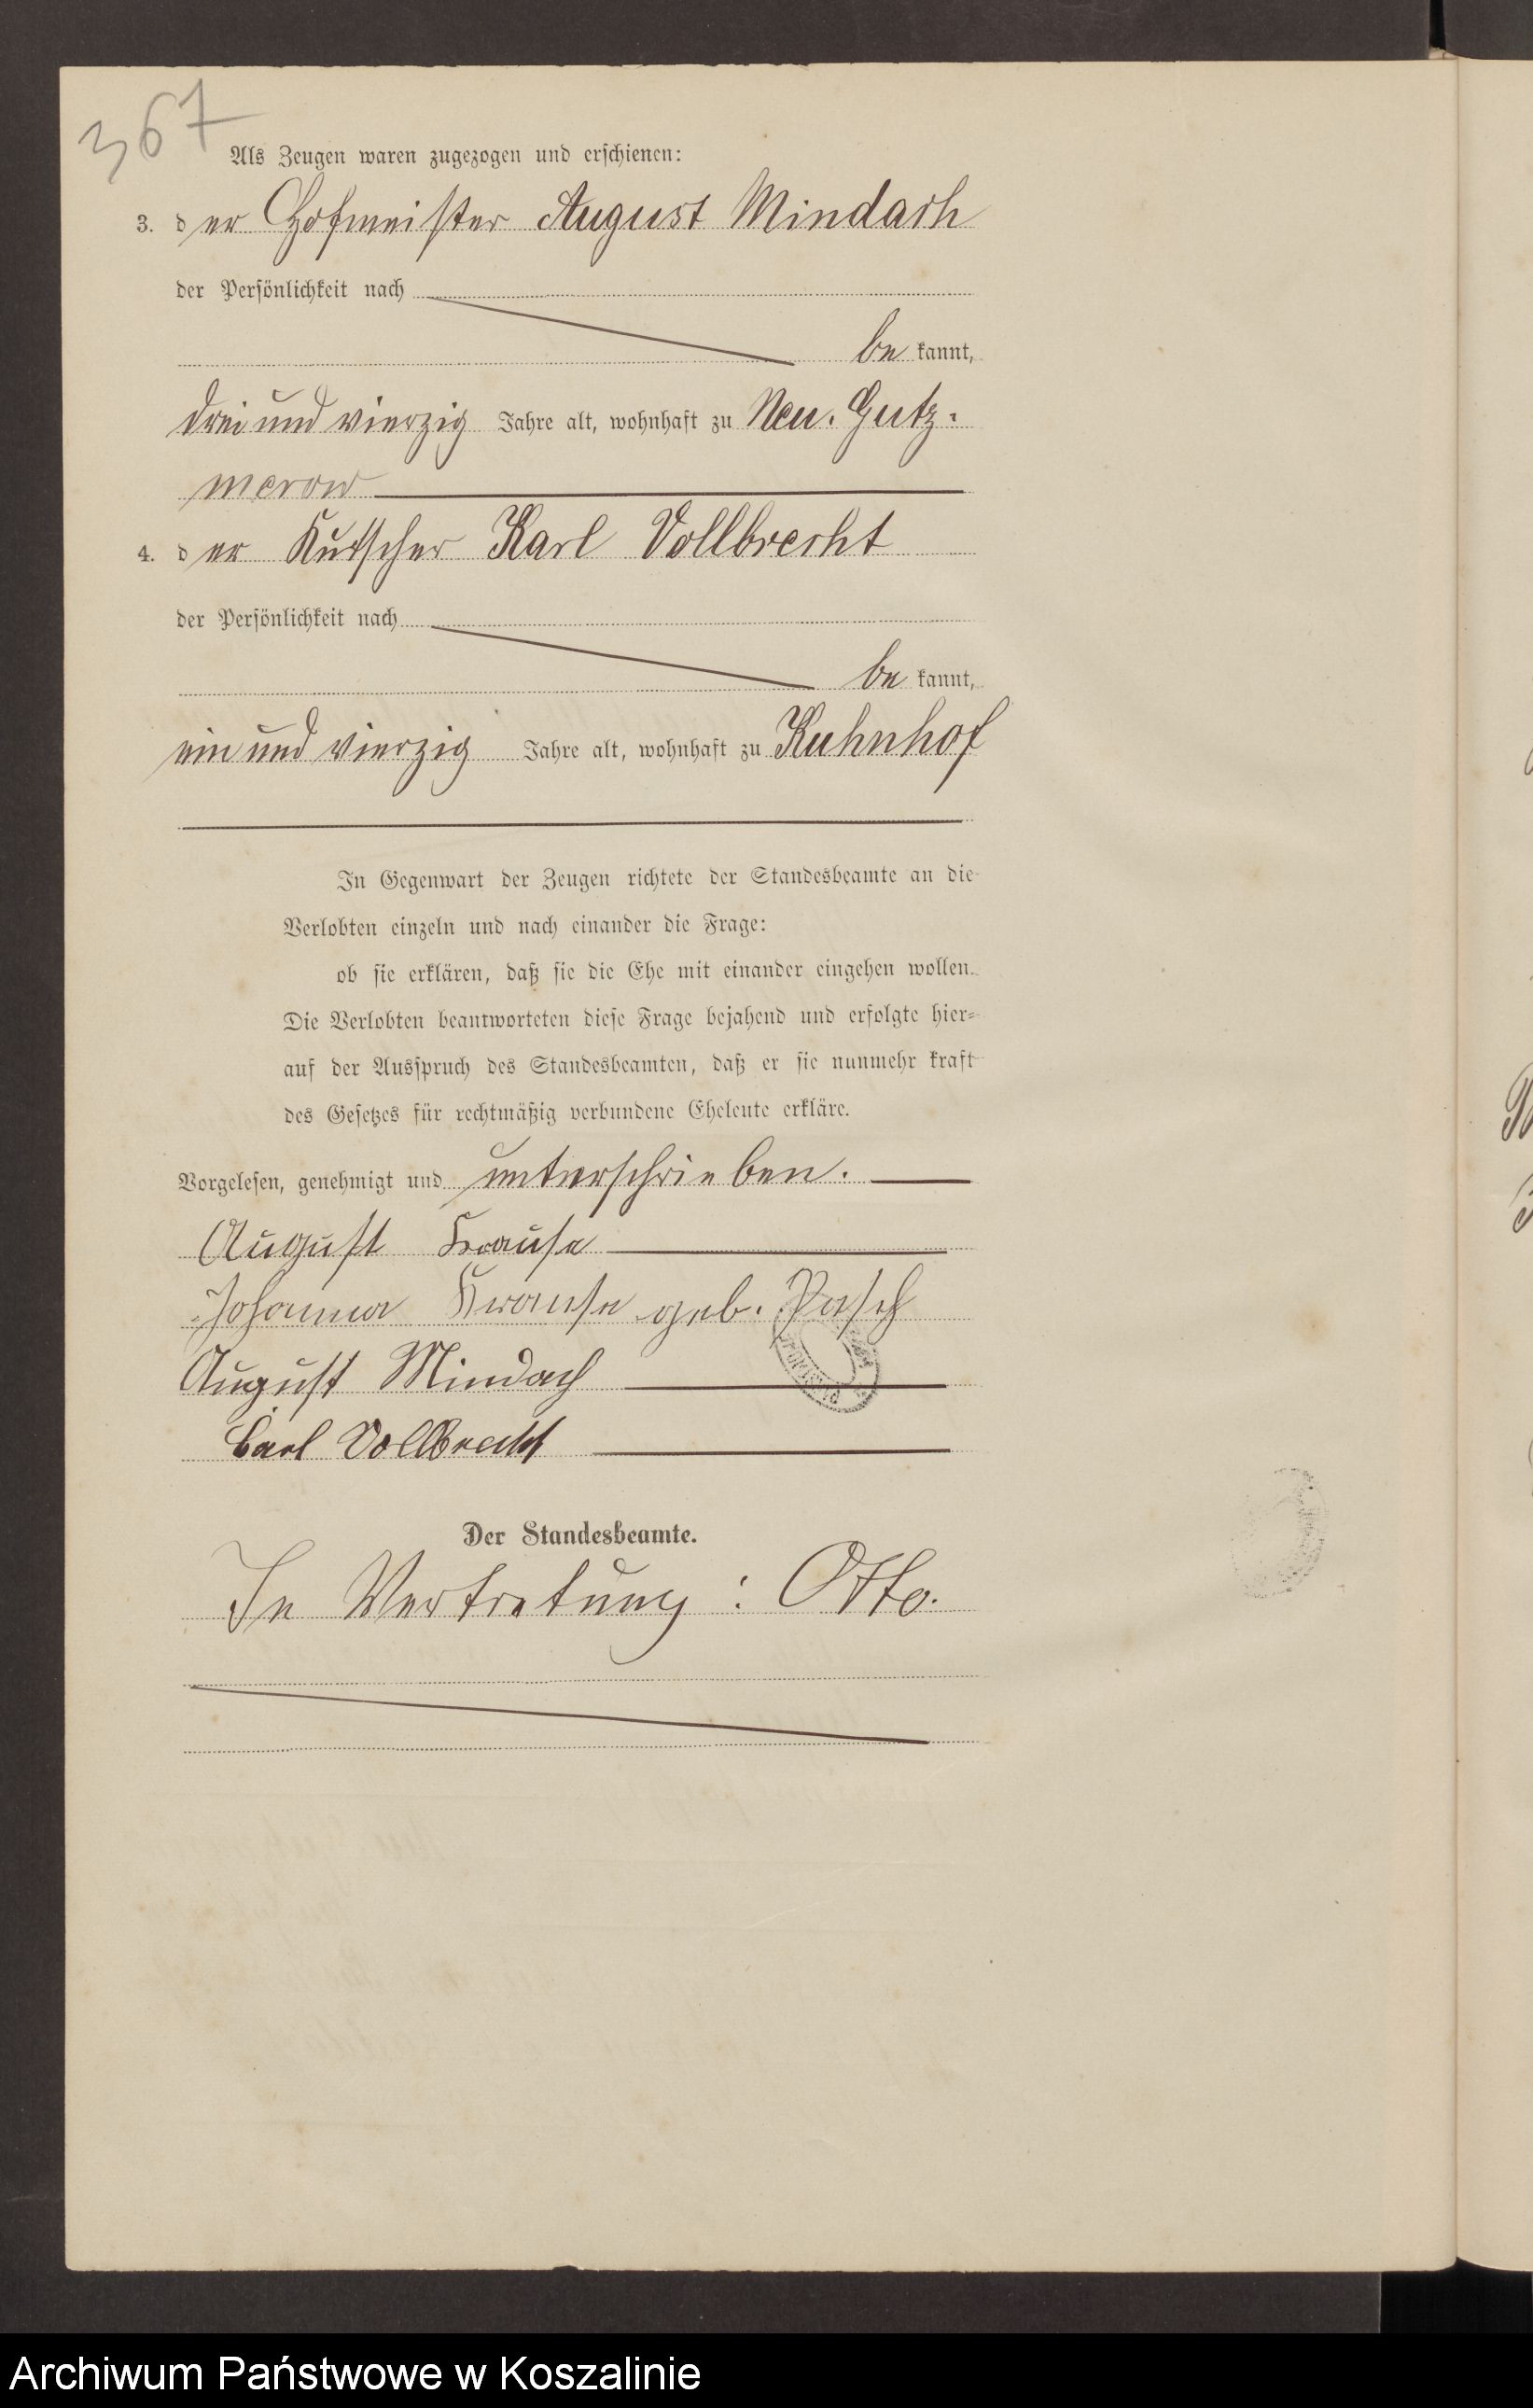 367
Als Zeugen waren zugezogen und erschienen:
3. der Hofmeister August Mindach
der Persönlichkeit nach
bekannt,
drei und vierzig Jahre alt, wohnhaft zu Neu. Gutz-
merow
4. der Kutscher Karl Vollbrecht
der Persönlichkeit nach
bekannt,
ein und vierzig Jahre alt, wohnhaft zu Kuhnhof
In Gegenwart der Zeugen richtete der Standesbeamte an die
Verlobten einzeln und nach einander die Frage:
ob sie erklären, daß sie die Ehe mit einander eingehen wollen.
Die Verlobten beantworteten diese Frage bejahend und erfolgte hier-
auf der Ausspruch des Standesbeamten, daß er sie nunmehr kraft
des Gesetzes für rechtmäßig verbundene Eheleute erkläre.
Vorgelesen, genehmigt und unterschrieben.
August Krause
Johanna Krause geb. Pasch
August Mindach
Carl Vollbrecht
Der Standesbeamte.
In Vertretung: Otto.
Archiwum Państwowe w Koszalinie